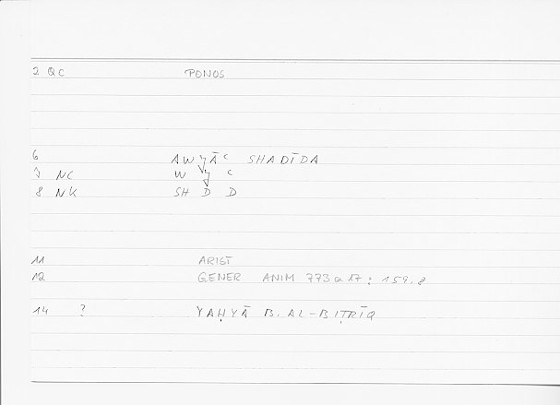 2 QC PONOS
6 AWYĀC SHADĪDA
7 NC W Y C
8 NK SH D D
11 ARIST
12 GENER ANIM 773 a 17 : 159.8
14 ? YAḤYĀ B. AL-BIṬRĪQ